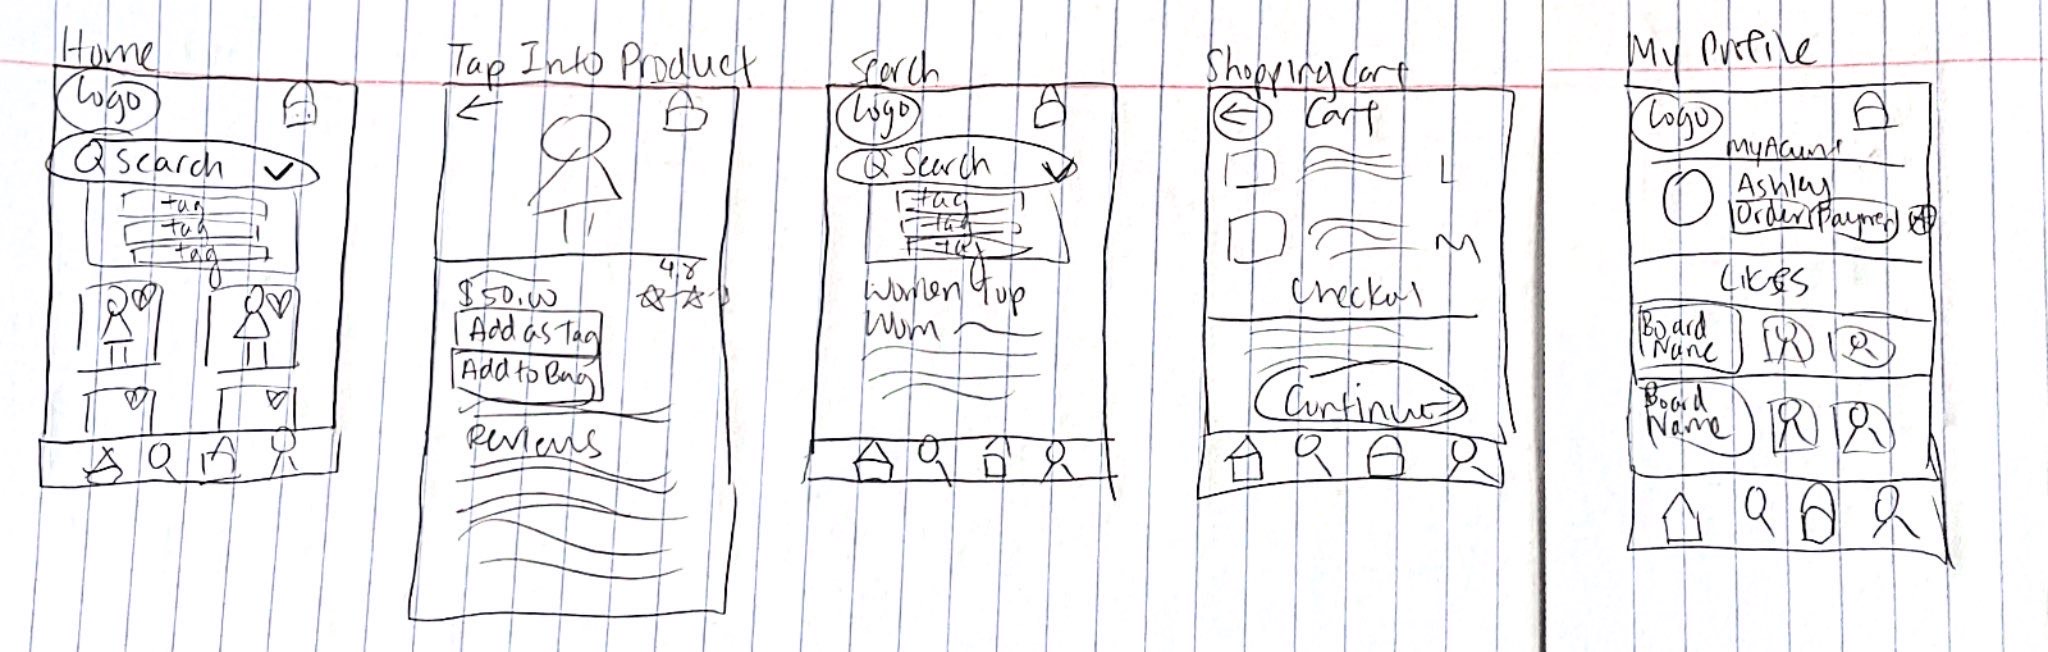 Home
Logo
Search
tag
tag
tag
Tap Into Product
$50.00
4.8
Add as Tag
Add to Bag
Reviews
Search
Logo
Search
tag
tag
tag
Women Top
Wom
Shopping Cart
Cart
L
M
Checkout
Continue
My Profile
Logo
My Account
Ashley
Order Payment
Likes
Board
Name
Board
Name